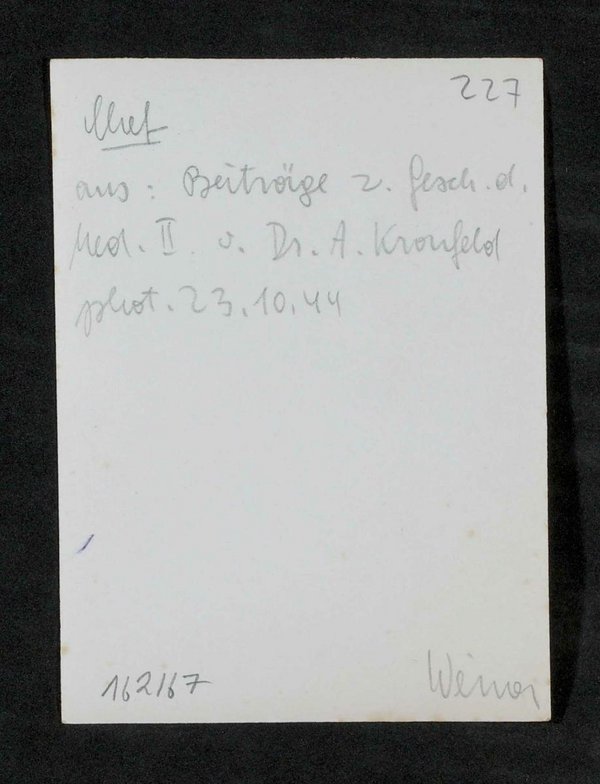 227
aus: Beiträge z. Gesch. d.
Med. II. v. Dr. A. Kronfeld
phot. 23.10.44
162/67